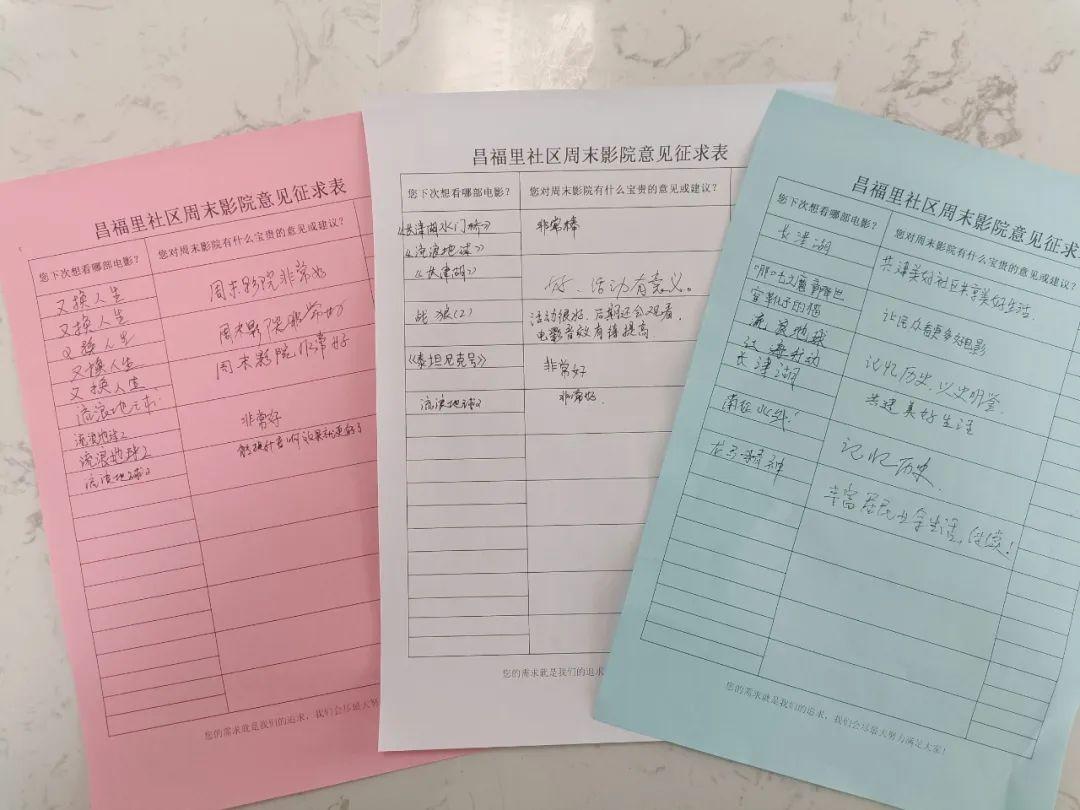 昌福里社区周末影院意见征求表
您下次想看哪部电影？
您对周末影院有什么宝贵的意见或建议？
又换人生
又换人生
又换人生
又换人生
又换人生
流浪地球
流浪地球2
流浪地球2
流浪地球2
周末影院非常好
周末影院非常好
周末影院非常好
非常好
能提升音响效果就更好了
您的需求就是我们的追求，我们会尽最大努
昌福里社区周末影院意见征求表
您下次想看哪部电影？
您对周末影院有什么宝贵的意见或建议？
《长津湖水门桥》
《流浪地球》
《长津湖》
战狼(2)
《泰坦尼克号》
流浪地球2
非常棒
好、活动有意义。
活动很好，后期还会观看，
电影音效有待提高
非常好
非常好.
您的需求就是我们的追求
昌福里社区周末影院意见征求
您下次想看哪部电影？
您对周末影院有什么宝贵的意见或建议？
长津湖
流浪地球
红海行动
长津湖
南征北战！
龙马精神
共建美好社区共享美好生活.
让民众看更多好电影
记忆历史.以史明鉴.
共建美好生活
记忆历史.
丰富居民业余生活，继续！
您的需求就是我们的追求，我们会尽最大努力满足大家！